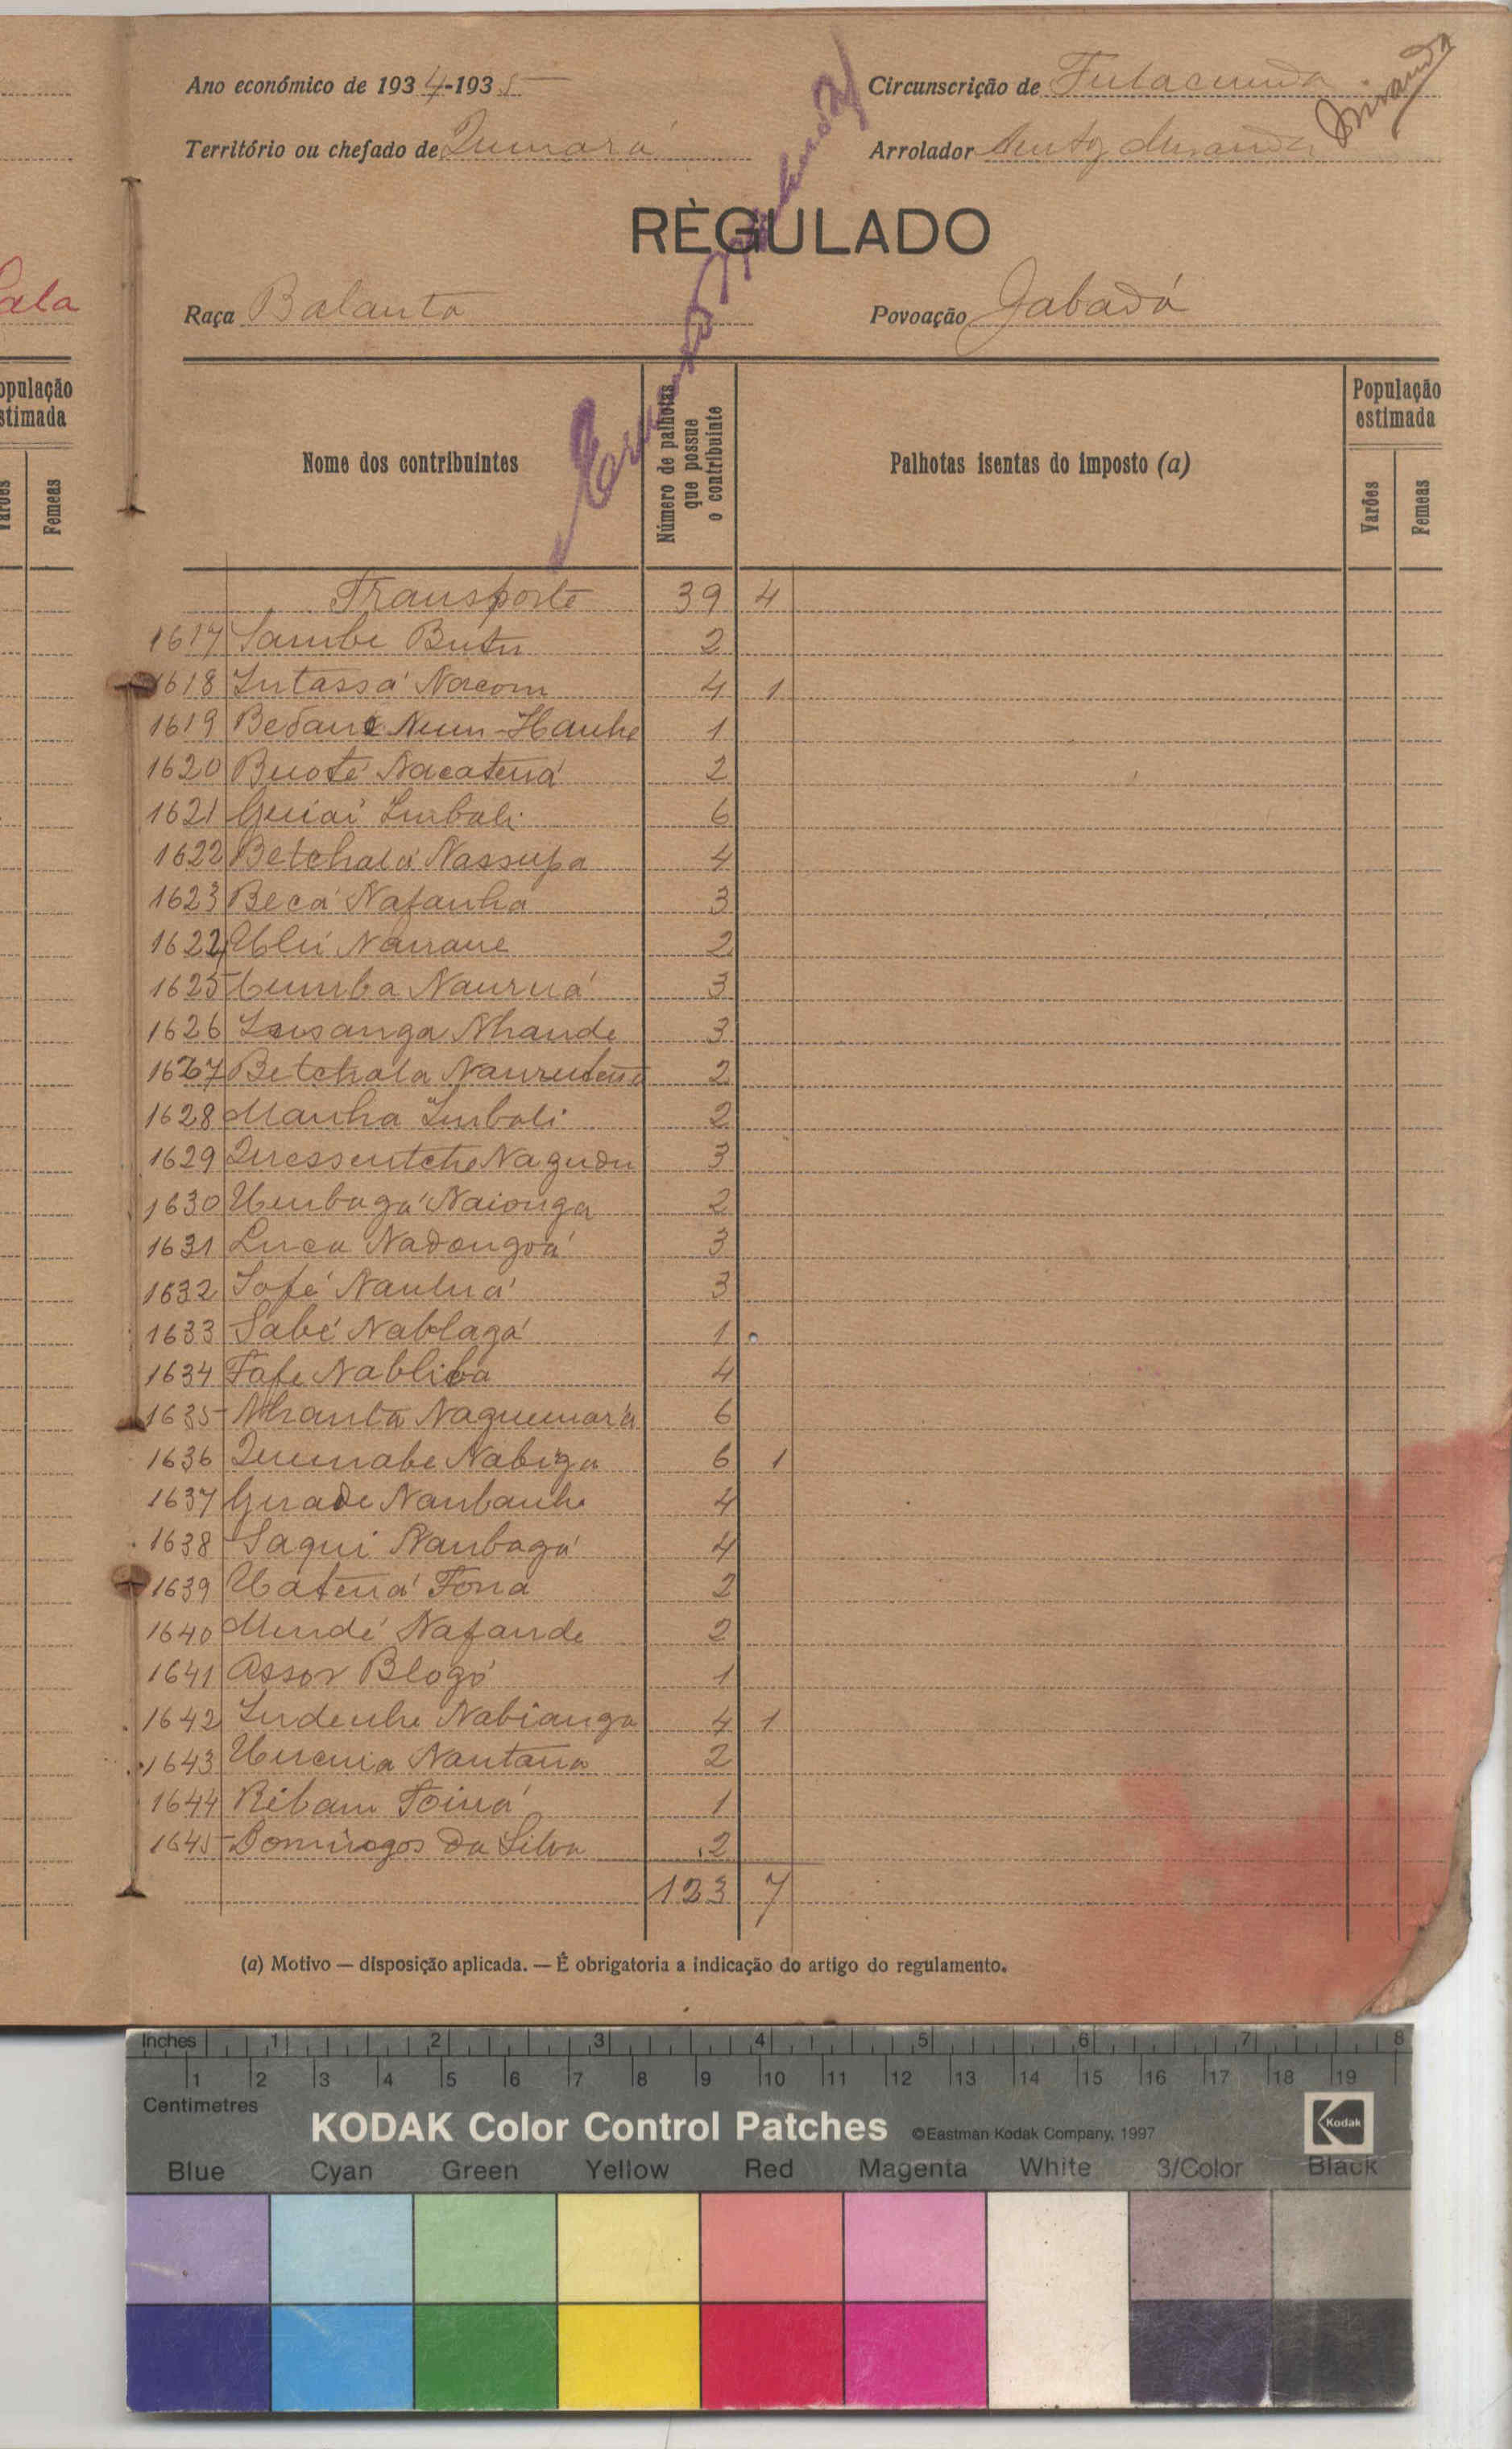 Ano económico de 1934-1935
Circunscrição de Fulacunda
Miranda
Território ou chefado de Quinara
Arrolador
RÈGULADO
Raça Balanta
Povoação Jabadá
ala
opulação
stimada
Varões
Femeas
Nome dos contribuintes
Número de palhotas que possue o contribuinte
Palhotas isentas do imposto (a)
População estimada
Varões
Femeas
Transporte 39 4
1617 Sambe Butu 2
1618 Intassá Nacom 4 1
1619 Num-Hanhe 1
1620 Buoté Nacatená 2
1621 Guiai Imbali 6
1622 Betchalá Nassupa 4
1623 Becá Nafanha 3
1624 2
1625 Cumba 3
1626 Nhande 3
1627 Betchala 2
1628 Manha Imbali 2
1629 Quessentche Nagudu 3
1630 Umbagá Naionga 2
1631 Luca Nadongoá 3
1632 Iofé 3
1633 Sabé Nablagá 1
1634 Fafe Nabliba 4
1635 Nhanta Naguemara 6
1636 Quemabe Nabiga 6 1
1637 Nanbanhe 4
1638 Saqui Nanbagá 4
1639 2
1640 Nafande 2
1641 Assor Blogó 1
1642 Indenhe Nabianga 4 1
1643 Nantana 2
1644 Ribam 1
1645 Domingos da Silva 2
123 7
(a) Motivo — disposição aplicada. — É obrigatoria a indicação do artigo do regulamento.
Inches 1 2 3 4 5 6 7 8
1 2 3 4 5 6 7 8 9 10 11 12 13 14 15 16 17 18 19
Centimetres
KODAK Color Control Patches ©Eastman Kodak Company, 1997 Kodak
Blue Cyan Green Yellow Red Magenta White 3/Color Black